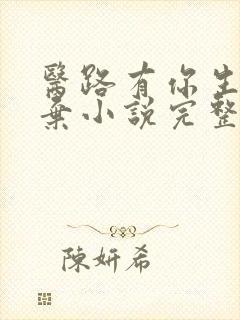 醫路有你生
棄小說完整
陳妍希